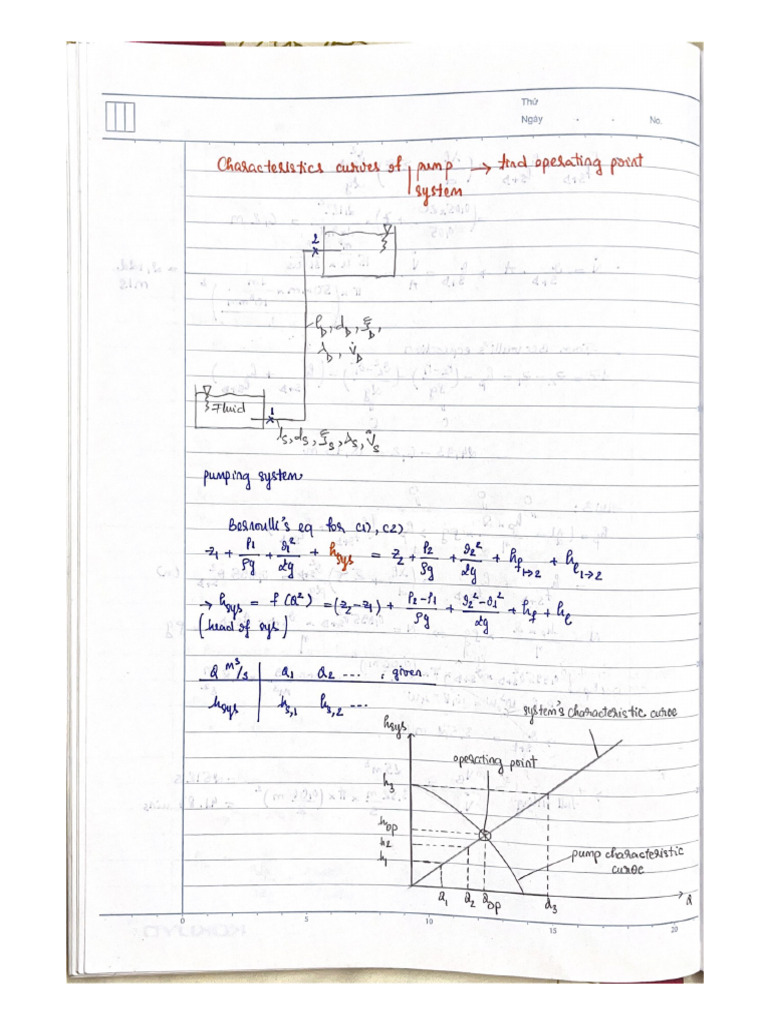 Thứ
Ngày . . No.
Characteristics curves of | pump → find operating point
system
2
x
l_D, d_D, ξ_D,
λ_D, V̇_D
Fluid
1
x
l_s, d_s, ξ_s, λ_s, V̇_s
pumping system
Bernoulli's eq for (1), (2)
z₁ + P₁/ρg + v₁²/2g + h_sys = z₂ + P₂/ρg + v₂²/2g + h_f 1→2 + h_l 1→2
→ h_sys = f(Q²) = (z₂ - z₁) + (P₂ - P₁)/ρg + (v₂² - v₁²)/2g + h_f + h_l
(head of sys)
Q m³/s | Q₁ Q₂ ... , given
h_sys | h_s,1 h_s,2 ...
system's characteristic curve
h_sys
operating point
h₃
h_op
h₂
h₁
pump characteristic
curve
Q₁ Q₂ Q_op Q₃ Q
0 5 10 15 20